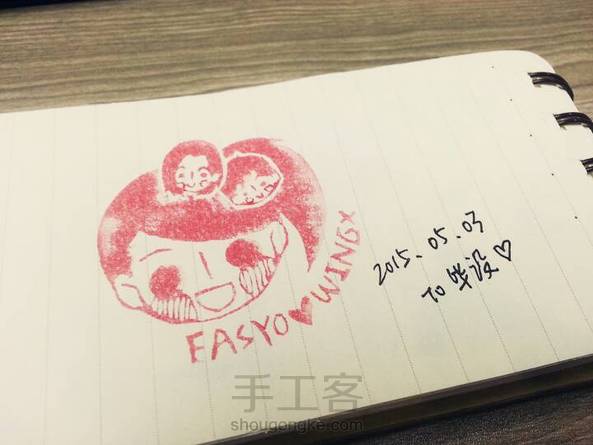 EASYO♥WINGX
2015.05.03
TO 毕设♡
手工客
shougongke.com